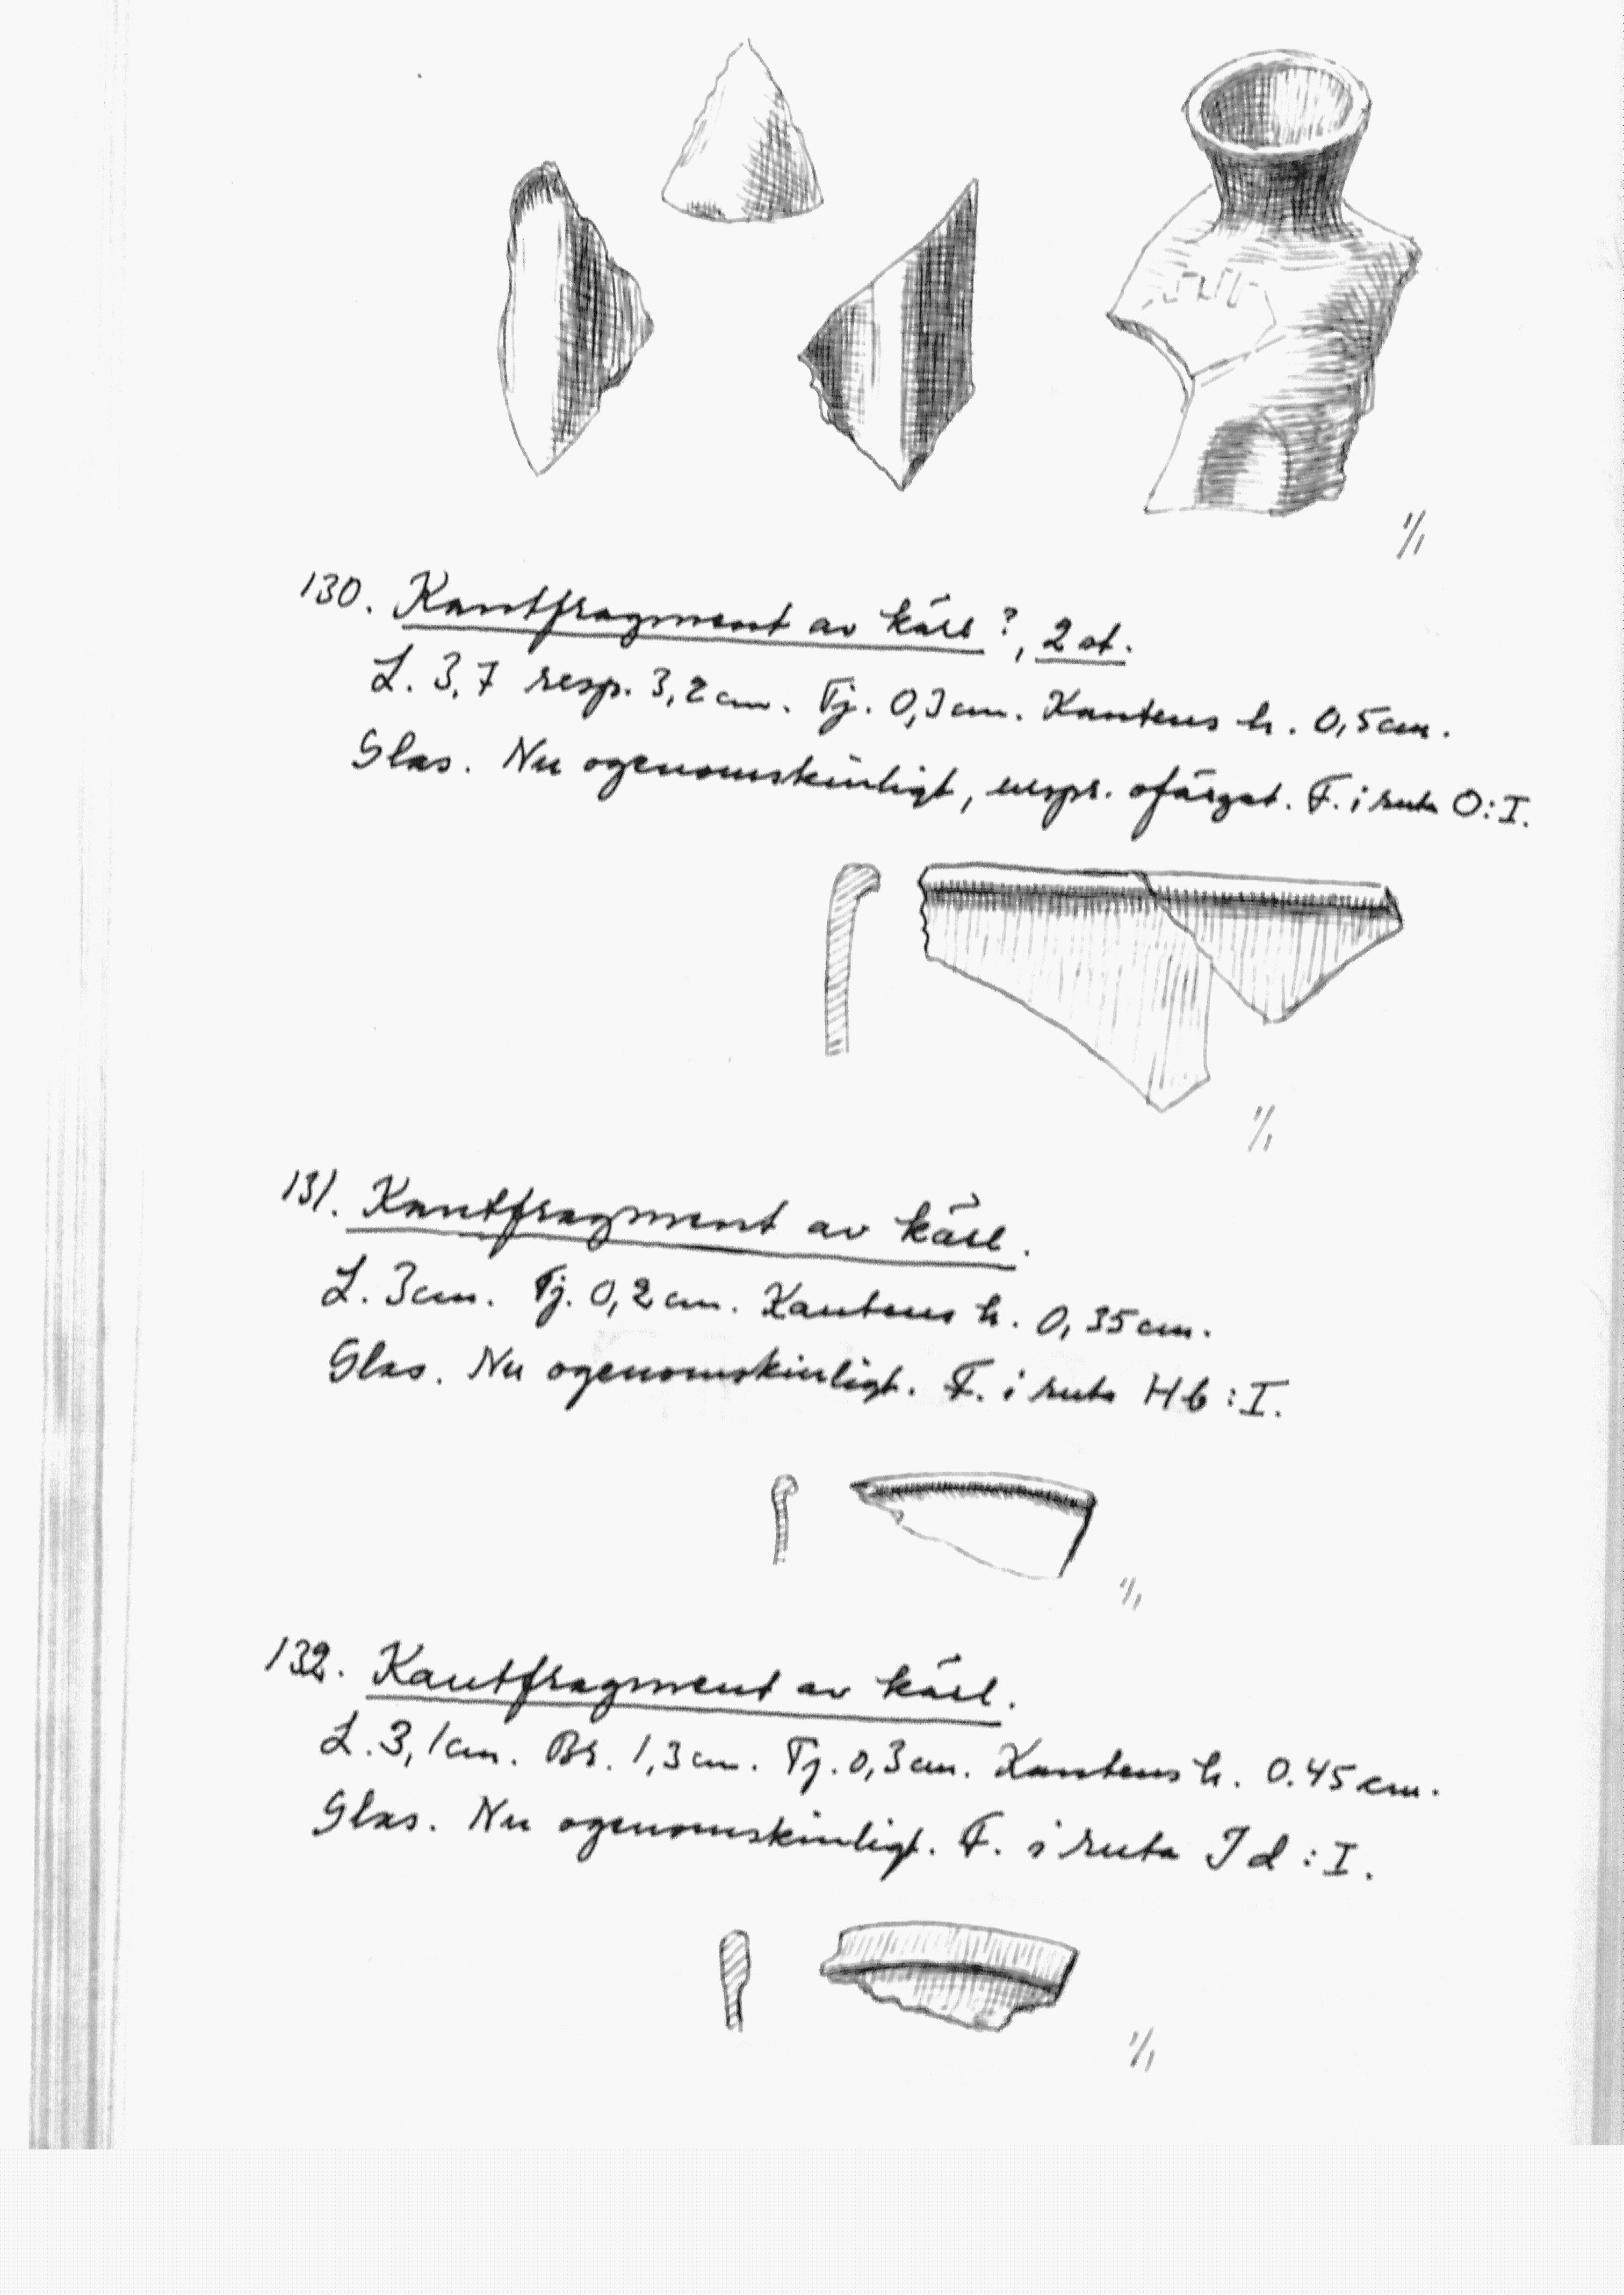 1/1
130. Kantfragment av kärl?, 2 st.
L. 3,7 resp. 3,2 cm. Tj. 0,3 cm. Kantens h. 0,5 cm.
Glas. Nu ogenomskinligt, urspr. ofärgat. F. i ruta O:I.
1/1
131. Kantfragment av kärl.
L. 3 cm. Tj. 0,2 cm. Kantens h. 0,35 cm.
Glas. Nu ogenomskinligt. F. i ruta Hb:I.
1/1
132. Kantfragment av kärl.
L. 3,1 cm. Br. 1,3 cm. Tj. 0,3 cm. Kantens h. 0.45 cm.
Glas. Nu ogenomskinligt. F. i ruta Id:I.
1/1